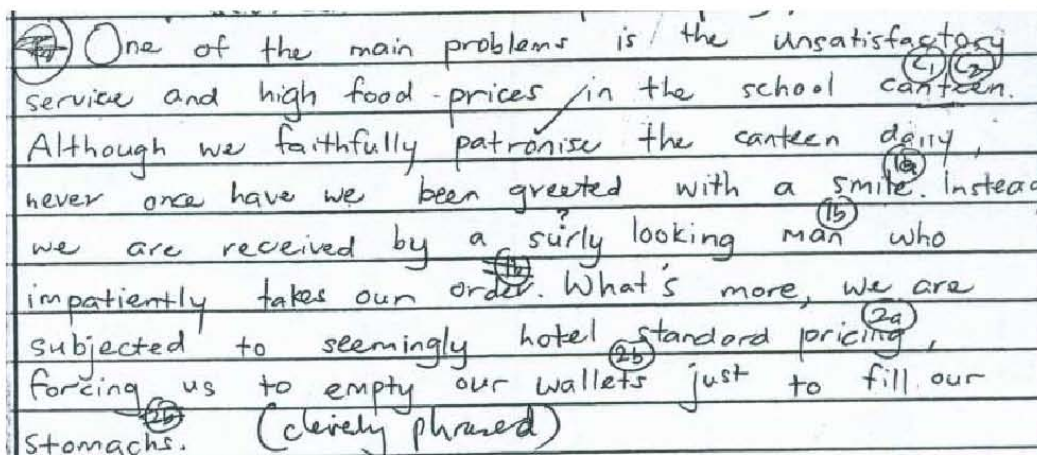 One of the main problems is the unsatisfactory
C1 C2
service and high food prices in the school canteen.
Although we faithfully patronise the canteen daily,
1a
never once have we been greeted with a smile. Instead
1b
we are received by a surly looking man who
?
1b
impatiently takes our order. What's more, we are
2a
subjected to seemingly hotel standard pricing,
2b
forcing us to empty our wallets just to fill our
2b
stomachs. (cleverly phrased)